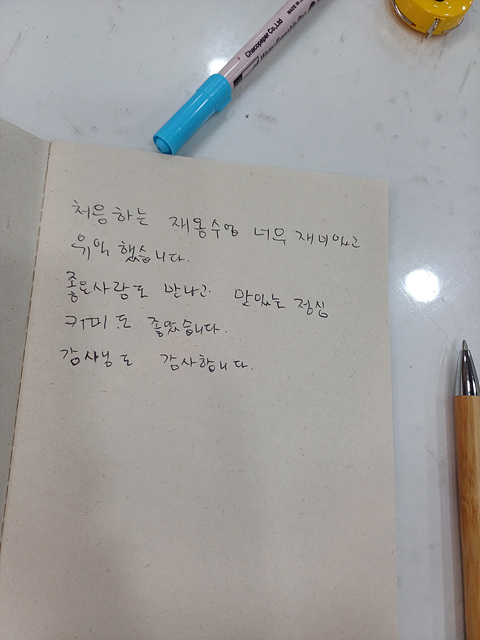 MADE IN
Chacopaper Co.,Ltd
처음하는 재봉수업 너무 재미있고
유익했습니다.
좋은사람도 만나고 맛있는 점심
커피도 좋았습니다.
강사님도 감사합니다.